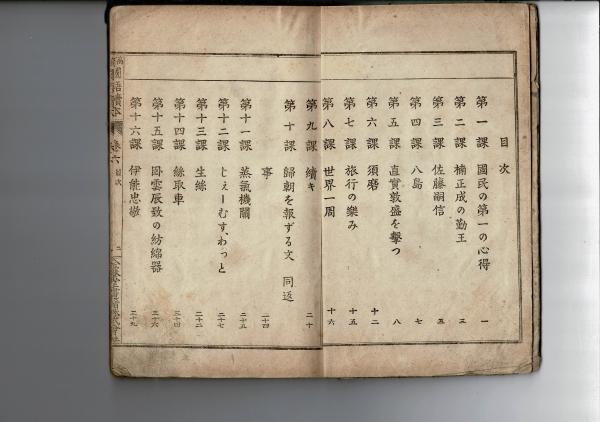 目次
第一課 國民の第一の心得 一
第二課 楠正成の勤王 三
第三課 佐藤嗣信 五
第四課 八島 七
第五課 直實敦盛を擊つ 八
第六課 須磨 十二
第七課 旅行の樂み 十五
第八課 世界一周 十六
第九課 續キ 二十
第十課 歸朝を報ずる文 同返
事 二十四
第十一課 蒸氣機關 二十五
第十二課 じぇーむす、わっと 二十七
第十三課 生絲 二十二
第十四課 絲取車 三十四
第十五課 臥雲辰致の紡綿器 三十六
第十六課 伊能忠敬 三十九
語讀本 卷六 目次 二